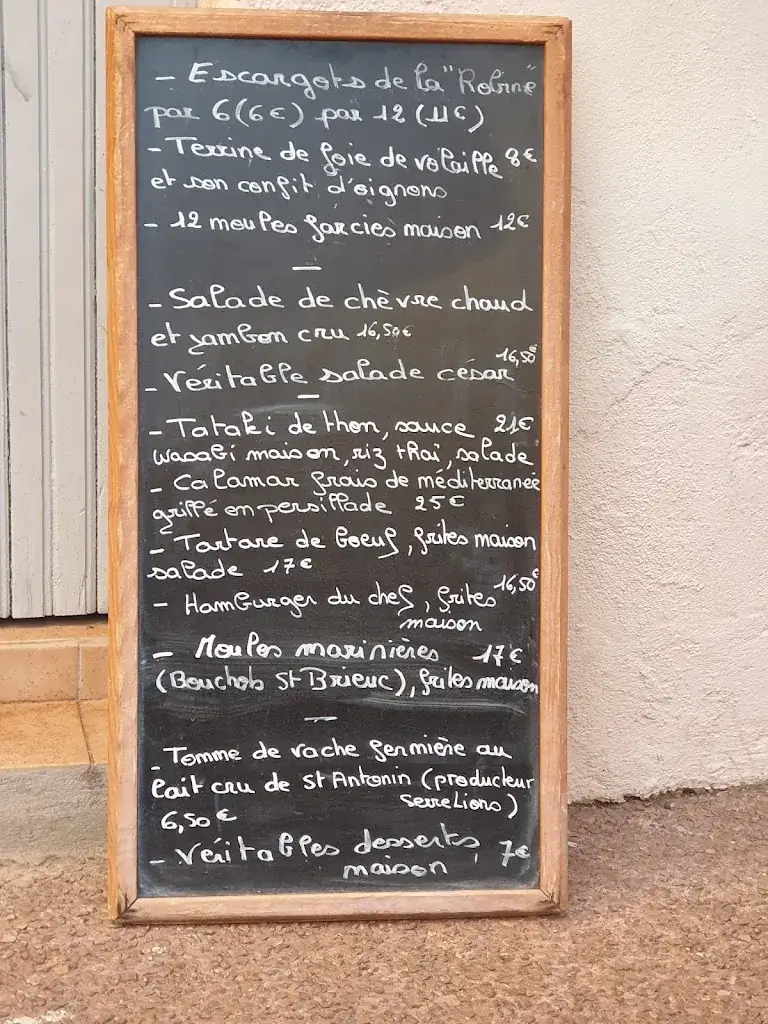 - Escargots de la "Robine"
par 6 (6€) par 12 (11€)
- Terrine de foie de volaille 8€
et son confit d'oignons
- 12 moules farcies maison 12€
—
- Salade de chèvre chaud
et jambon cru 16,50€
- Véritable salade césar 16,50€
—
- Tataki de thon, sauce 21€
wasabi maison, riz thaï, salade
- Calamar frais de méditerranée
grillé en persillade 25€
- Tartare de boeuf, frites maison
salade 17€
- Hamburger du chef, frites 16,50€
maison
- Moules marinières 17€
(Bouchots St Brieuc), frites maison
—
- Tomme de vache fermière au
lait cru de St Antonin (producteur
Serre Lions)
6,50€
- Véritables desserts, 7€
maison